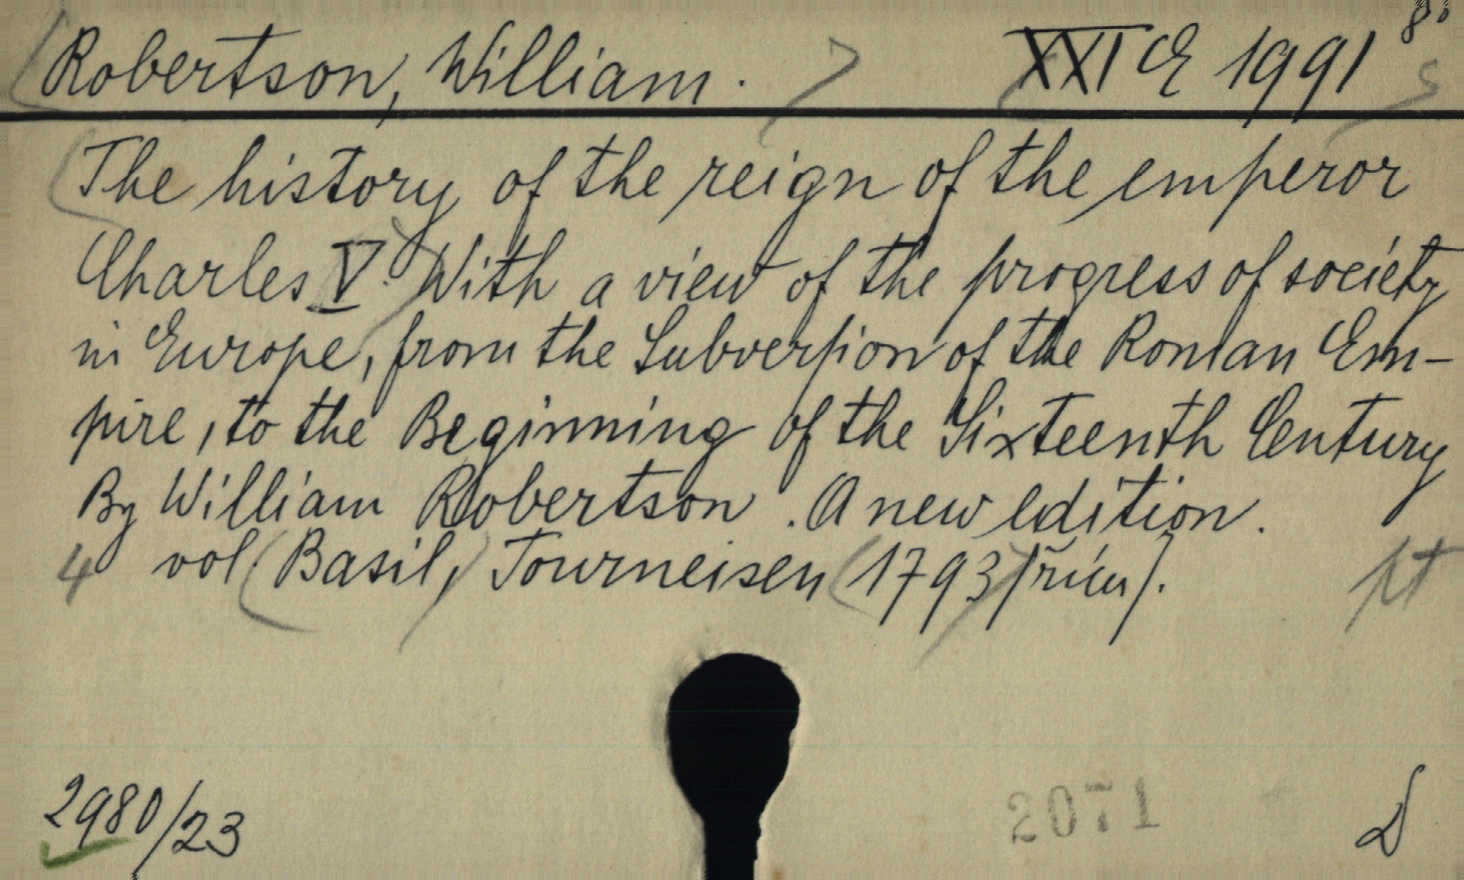 Robertson, William. XXI E 1991 8°
The history of the reign of the emperor
Charles V. With a view of the progress of society
in Europe, from the Subversion of the Roman Em-
pire, to the Beginning of the Sixteenth Century
By William Robertson. A new edition.
4 vol. Basil, Tourneisen 1793 [říj]
2980/23 2071 D